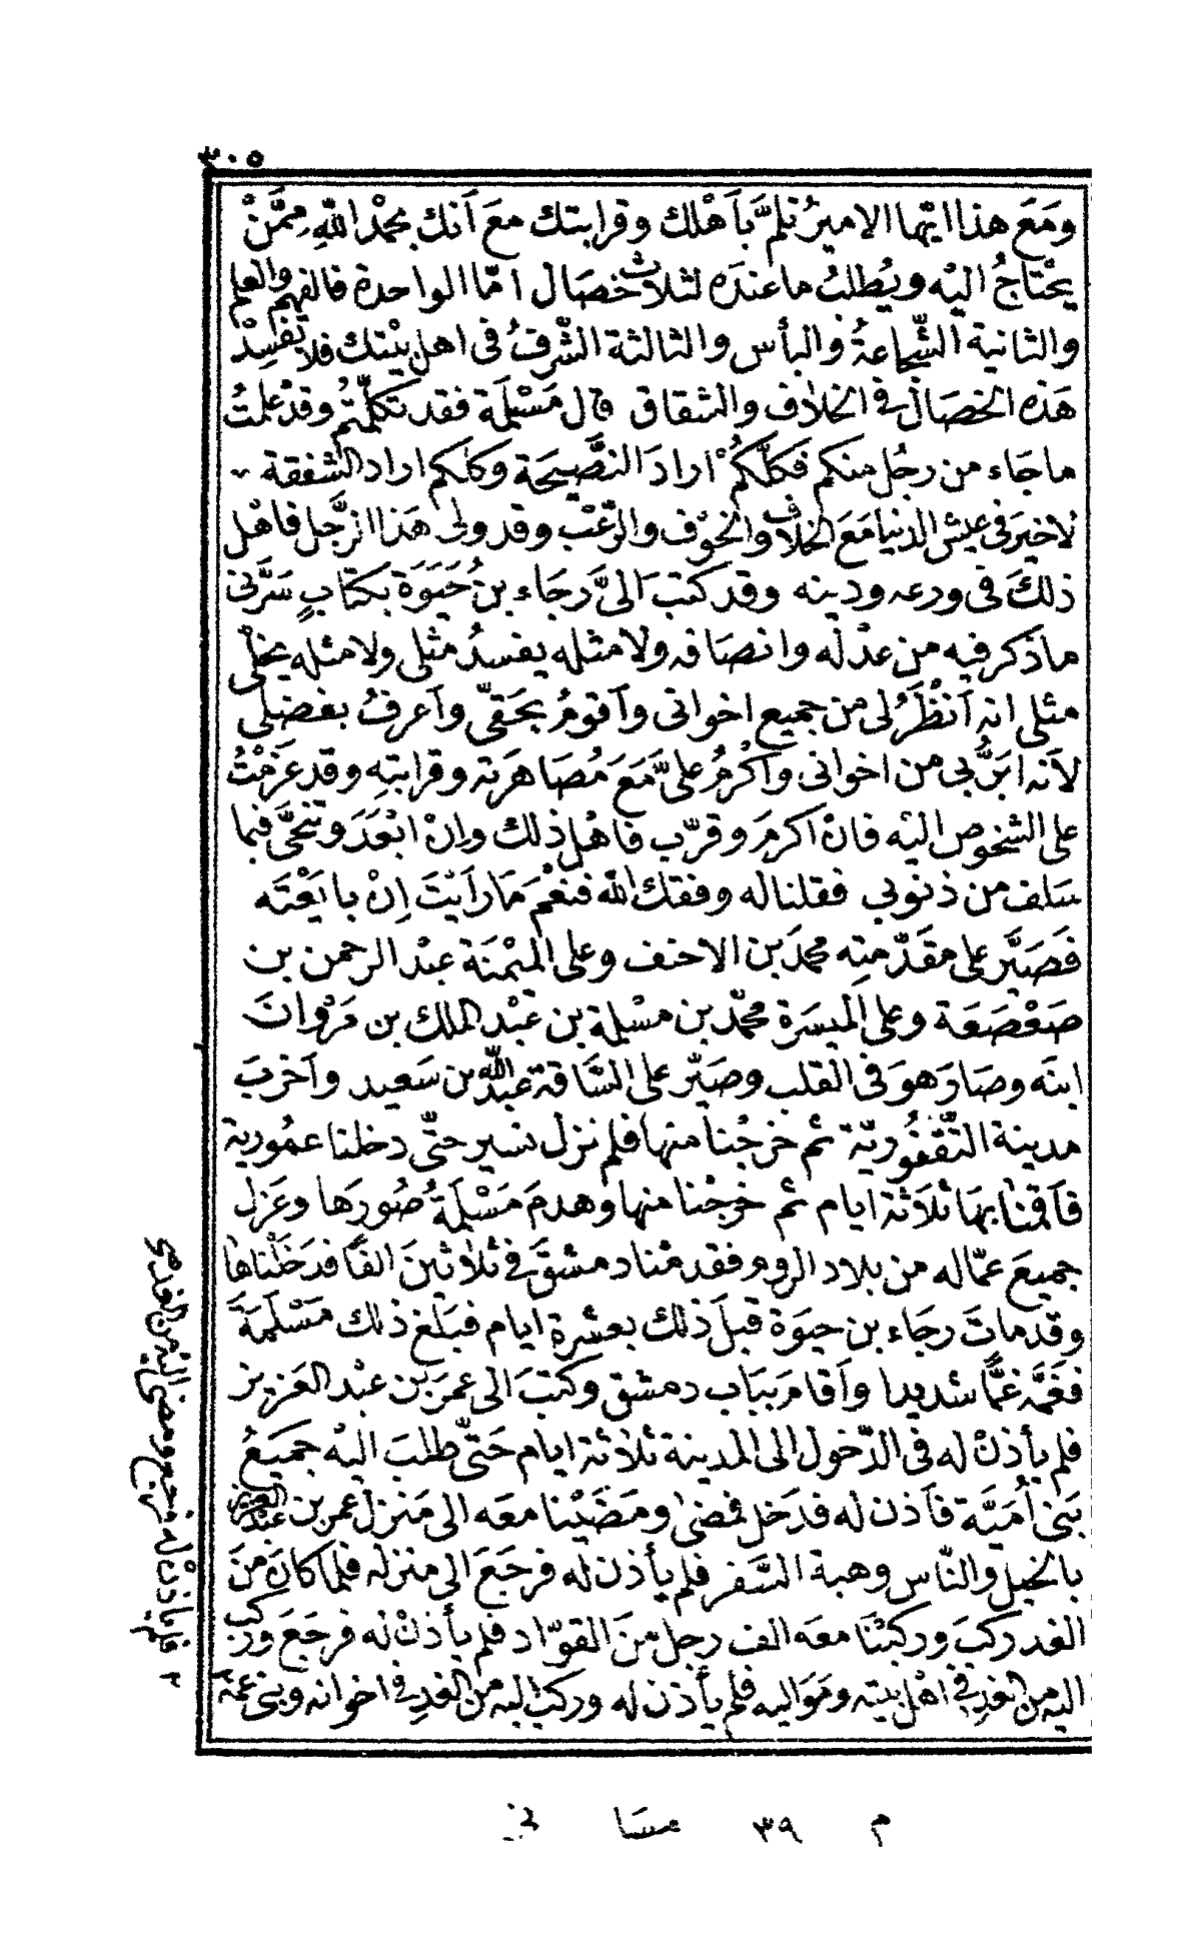 ٣٠٥
ومَعَ هذا ايّها الاميرُ نلمَّ بأَهْلك وقرابتك معَ أنك بحمْد اللهِ مِمَّنْ
يحْتاجُ اليْه ويُطلبُ ما عندَه لثلاث خصَال امّا الواحدة فالفهم والعلم
والثانية الشّجاعةُ والبأس والثالثة الشّرفُ فى اهل بيْتك فلا تفسِدْ
هَذه الخصَال في الخلاف والشقاق قال مَسْلمَة فقد تكلّمتُم وقدْ علمتُ
ما جَاء من رجُل منكم فكلَّكُمْ ارادَ النَّصِيحَة وكلكم اراد الشفقة
لاخيرَ فى عيش الدنيا مَعَ الخلاف والخوْف والرّعْب وقد ولى هَذا الرَّجل فاهْل
ذلكَ فى ورعه ودينه وقد كتبَ الىَّ رجَاء بنُ حَيَوَة بكتابٍ سَرَّنى
ما ذكر فيه من عدْله وانصَافه ولا مثله يفسدُ مثلى ولا مثله يخلى
مثلى انه أنْظَرُ لى من جميع اخوانى وأقومُ بحَقىّ وأعرفُ بفضلى
لأنه ابَرُّ بى من اخوانى وأكْرمُ علىَّ مَعَ مُصَاهَرته وقرابتِه وقد عَزمْتُ
على الشخوص اليْه فانْ اكرمَ وقرّب فاهْل ذلك وإنْ ابْعَدَ وتنحَّى فبما
سَلف من ذنوبى فقلنا له وفقك الله فنعْمَ مَا رأيْتَ إنْ بايَعْتَه
فَصَيَّر على مقَدّمتِه محمدَ بن الاحنف وعلى الميْمنَة عبْد الرحمن بن
صَعْصَعَة وعلى الميسَرة محمّد بن مسْلمة بن عَبْد الملك بن مَرْوانَ
ابنَه وصَارَ هوَ فى القلب وصَيّر على السَّاقة عبد الله بن سَعيد وأخربَ
مدينة التّقفُوريّة ثم خرجْنا منها فلم نزل نسير حتّى دخلنا عمُورية
فأقمنا بهَا ثلاَثة ايام ثم خرجْنا منها وهدمَ مَسْلمَةُ صُورَها وعَزل
جميعَ عمّاله من بلاد الروم فقدمْنا دمشقَ في ثلاثينَ الفًا فدخَلْناها
وقد ماتَ رجَاء بن حيوَة قبلَ ذلك بعشرة ايام فبَلغ ذلك مَسْلمَةَ
فغَمَّه غمًّا شديدا وأقامَ ببَاب دمشق وكتبَ الى عمرَ بن عبْد العَزيز
فلم يأذنْ له فى الدّخول الى المدينة ثلاثة ايام حَتّى طلبَ اليْه جميعُ
بَنى أُميَّة فأذن له فدَخل فمضى ومَضَيْنا معَه الى مَنزل عمر بن عبْد العزيز
بالخيل والنّاس وهبة السَّفر فلم يأذن له فرجَعَ الى منزله فلما كانَ منَ
الغد ركبَ وركبْنَا معَه الف رجل منَ القوّاد فلم يأذنْ له فرجَعَ وركب
اليه من الغدِ في اهْل بيته ومَوَاليه فلم يأذن له وركبَ اليه من الغدِ في اخوانه وبنى عمّه
٢ فلم يأذنْ له فرجع ومضى اليْه من الغد في
م ٣٩ مسا نى